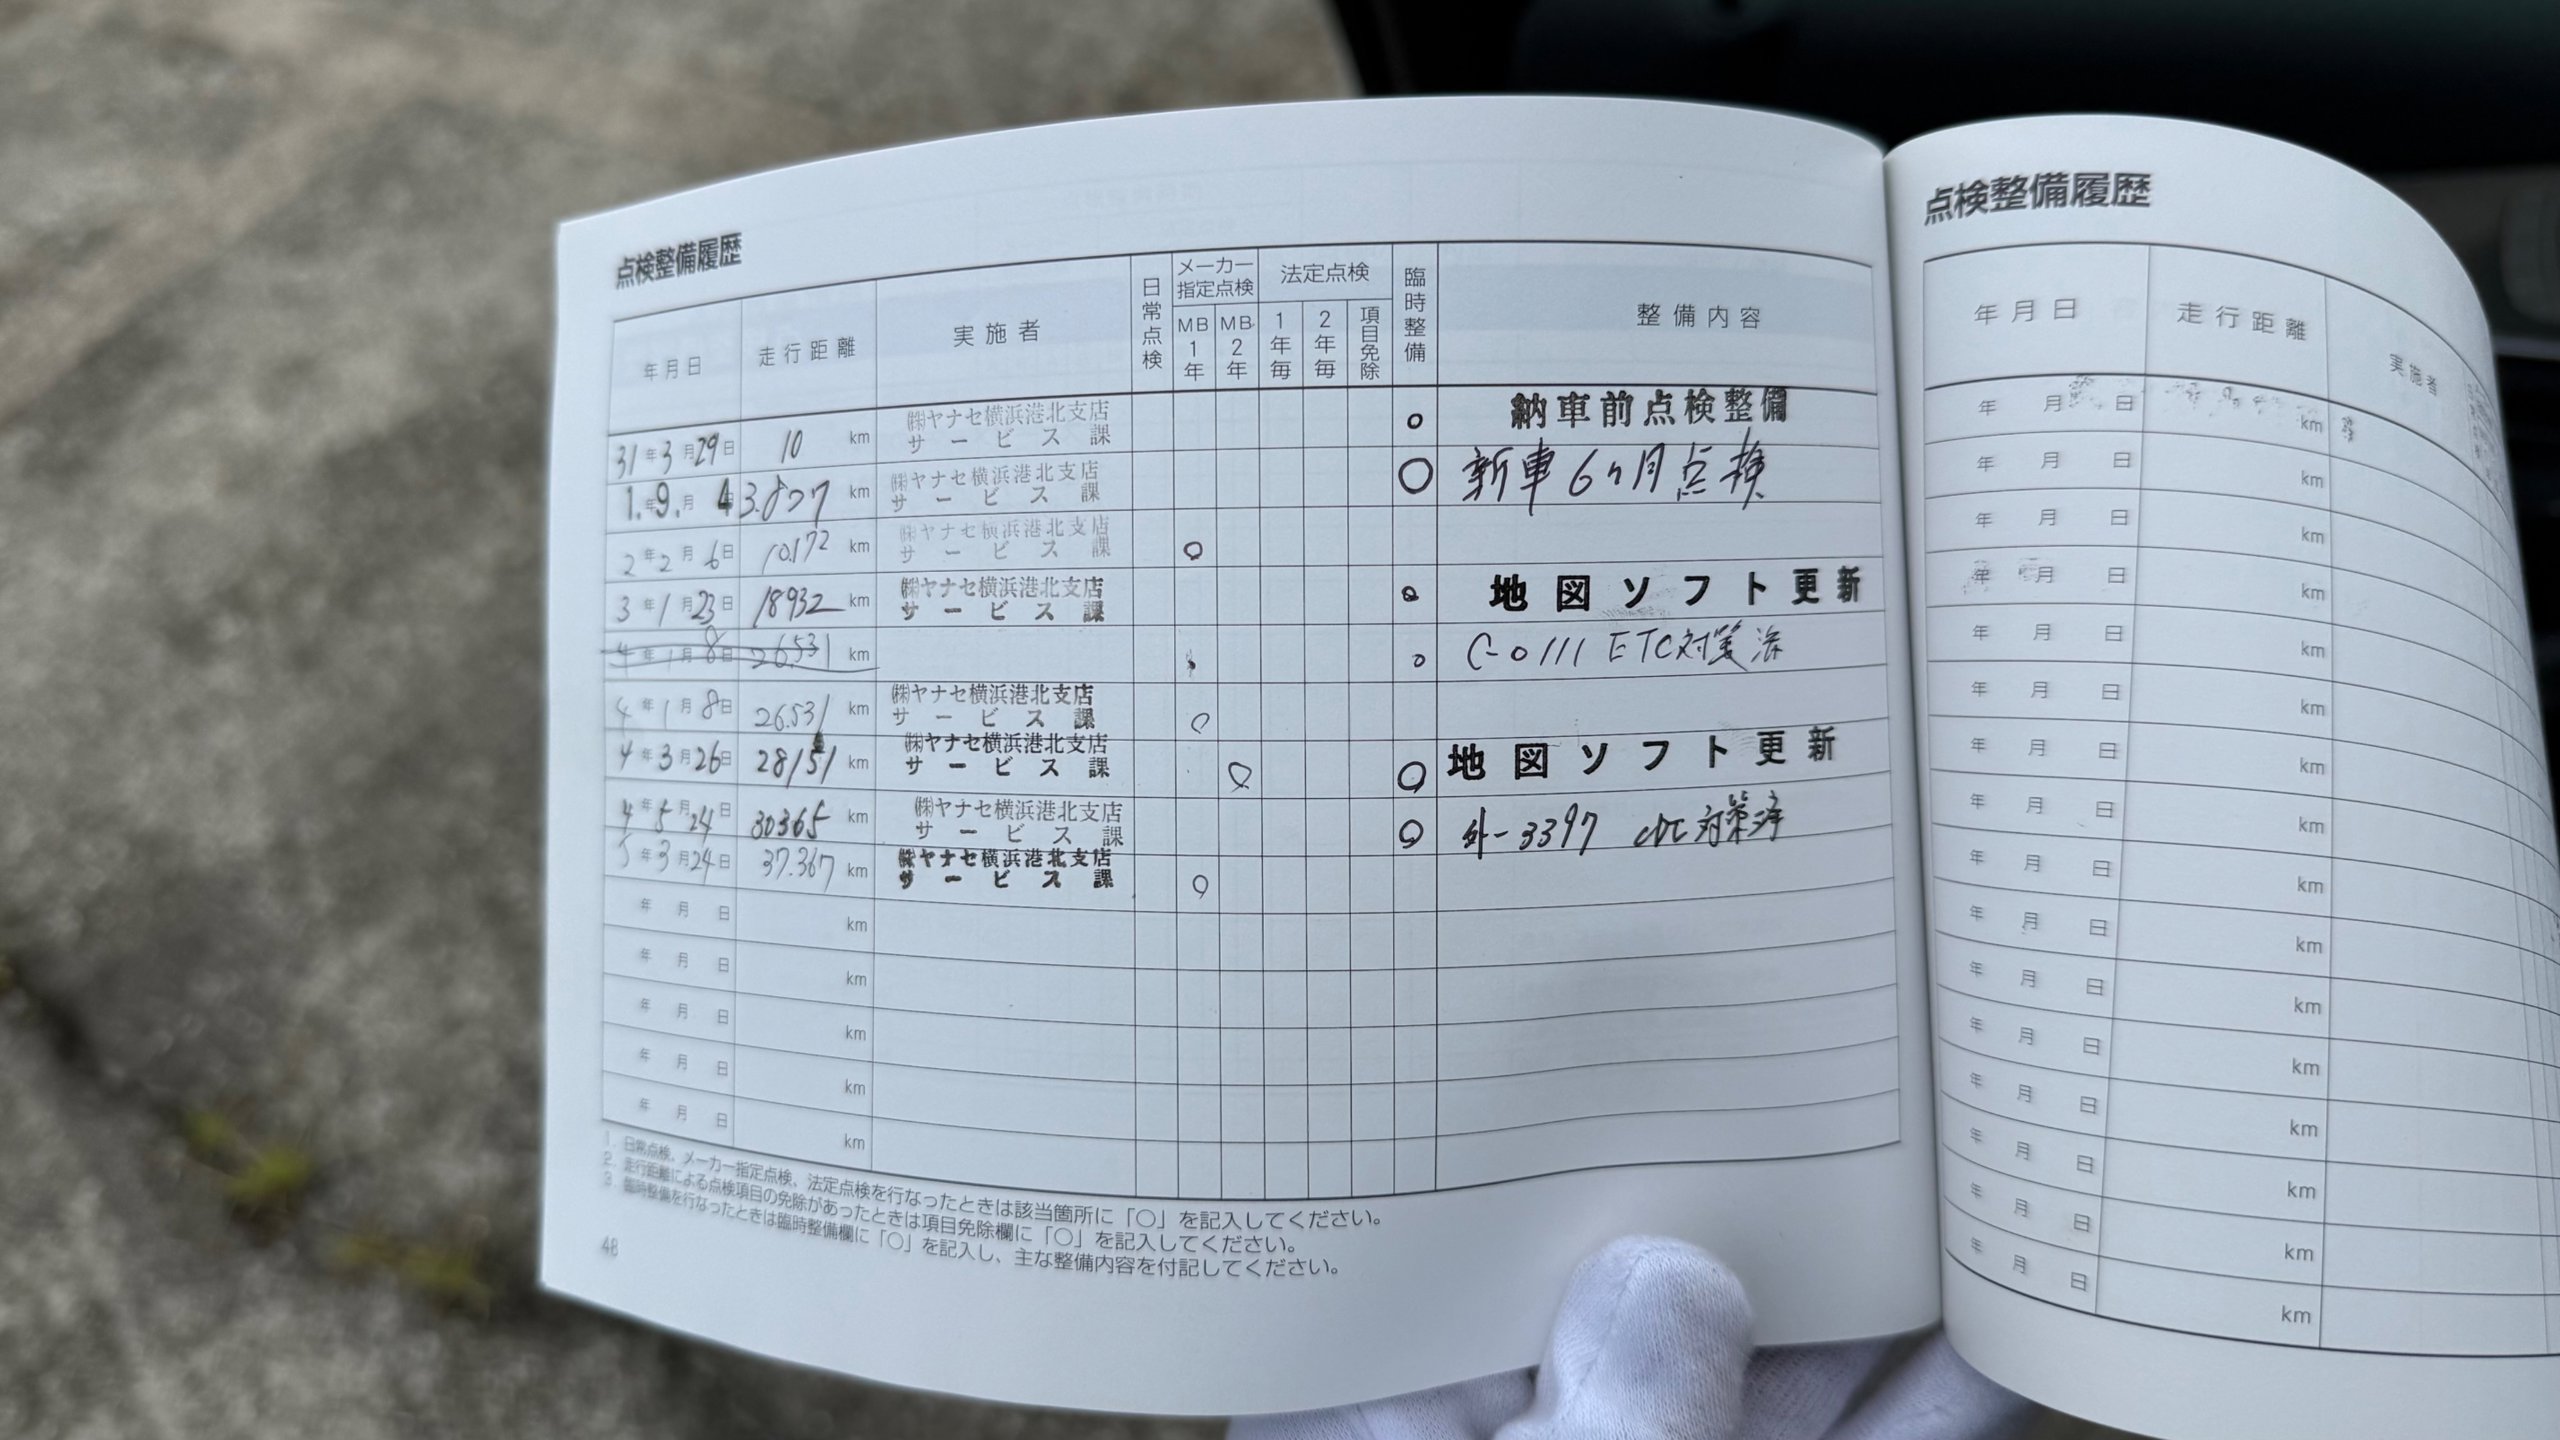 点検整備履歴
年月日 走行距離 実施者 日常点検 メーカー指定点検 MB1年 MB2年 法定点検 1年毎 2年毎 項目免除 臨時整備 整備内容
31年3月29日 10 km ㈱ヤナセ横浜港北支店 サービス課 ○ 納車前点検整備
1.年9.月4日 3.877 km ㈱ヤナセ横浜港北支店 サービス課 ○ 新車6ヶ月点検
2年2月6日 10.172 km ㈱ヤナセ横浜港北支店 サービス課 ○
3年1月23日 18932 km ㈱ヤナセ横浜港北支店 サービス課 ○ 地図ソフト更新
4年1月8日 26.531 km ○ C-0111 ETC対策済
4年1月8日 26.531 km ㈱ヤナセ横浜港北支店 サービス課 ○
4年3月26日 28151 km ㈱ヤナセ横浜港北支店 サービス課 ○ ○ 地図ソフト更新
4年5月24日 30365 km ㈱ヤナセ横浜港北支店 サービス課 ○ 外-3397 対策済
5年3月24日 37.367 km ㈱ヤナセ横浜港北支店 サービス課 ○
年 月 日 km
年 月 日 km
年 月 日 km
年 月 日 km
年 月 日 km
1. 日常点検、メーカー指定点検、法定点検を行なったときは該当箇所に「○」を記入してください。
2. 走行距離による点検項目の免除があったときは項目免除欄に「○」を記入してください。
3. 臨時整備を行なったときは臨時整備欄に「○」を記入し、主な整備内容を付記してください。
48
点検整備履歴
年月日 走行距離 実施者
年 月 日 km
年 月 日 km
年 月 日 km
年 月 日 km
年 月 日 km
年 月 日 km
年 月 日 km
年 月 日 km
年 月 日 km
年 月 日 km
年 月 日 km
年 月 日 km
年 月 日 km
年 月 日 km
年 月 日 km
年 月 日 km